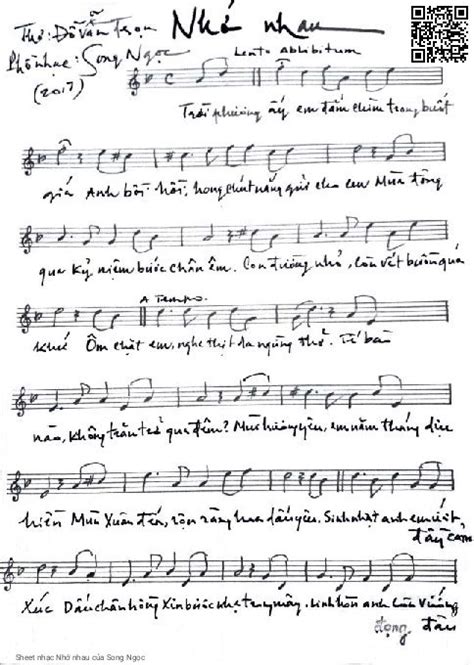 Thơ: Đỗ Văn Trọn
Nhớ nhau
Phổ nhạc: Song Ngọc
(2017)
Lento ablibitum
Trời phương ấy em đắm chìm trong buốt
giá Anh bồi hồi, hong chút nắng gửi cho em Mùa đông
qua Kỷ niệm bước chân êm. Con đường nhỏ, còn vết buồn quá
khứ
A Tempo.
Ôm chặt em, nghe thịt da ngừng thở. Tế bào
nào, không trăn trở qua đêm? Mùi hương yêu, em năm tháng dịu
hiền Mùa Xuân đến, rộn ràng hoa dấu yêu. Sinh nhật anh em
đầy cảm
Xúc Dấu chân hồng Xin bước nhẹ trong mây. Linh hồn anh Còn vương
đọng đâu
Sheet nhạc Nhớ nhau của Song Ngọc